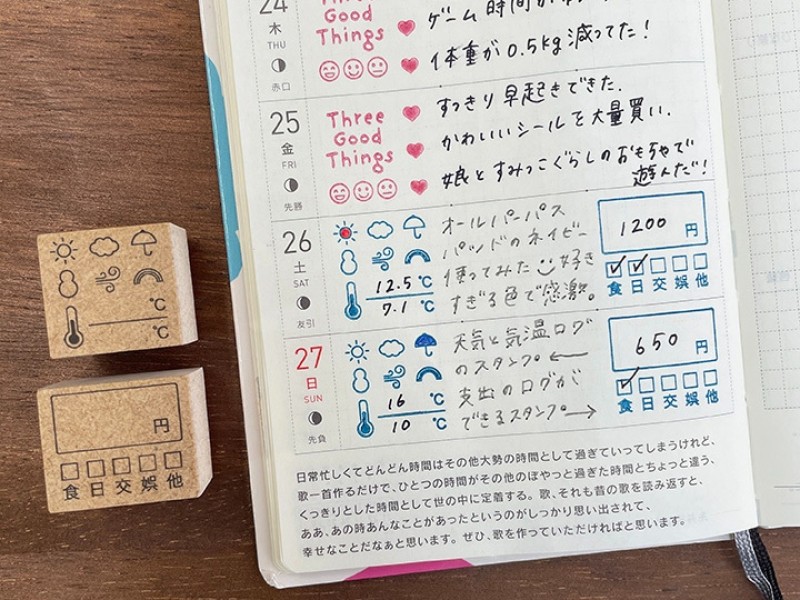 24
木
THU
赤口
Three
Good
Things
ゲーム時間が
体重が0.5kg減ってた!
25
金
FRI
先勝
Three
Good
Things
すっきり早起きできた.
かわいいシールを大量買い.
娘とすみっこぐらしのおもちゃで
遊んだ!
26
土
SAT
友引
12.5℃
7.1℃
オールパーパス
パッドのネイビー
使ってみた 好き
すぎる色で感激。
1200円
食日交娯他
27
日
SUN
先負
16℃
10℃
天気と気温ログ
のスタンプ←
支出のログが
できるスタンプ→
650円
食日交娯他
日常忙しくてどんどん時間はその他大勢の時間として過ぎていってしまうけれど、
歌一首作るだけで、ひとつの時間がその他のぼやっと過ぎた時間とちょっと違う、
くっきりとした時間として世の中に定着する。歌、それも昔の歌を読み返すと、
ああ、あの時あんなことがあったというのがしっかり思い出されて、
幸せなことだなぁと思います。ぜひ、歌を作っていただければと思います。
℃
℃
円
食日交娯他